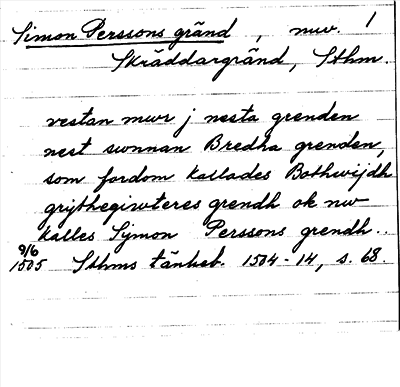 Simon Perssons gränd, nuv. 1
Skräddargränd, Sthm.
vestan mwr j nesta grenden
nest swnnan Bredha grenden,
som fordom kallades Bothwijdh
grijthegiwteres grendh ok nw
kalles Sijmon Perssons grendh..
9/6
1505 Sthms tänkeb. 1504-14, s. 68.